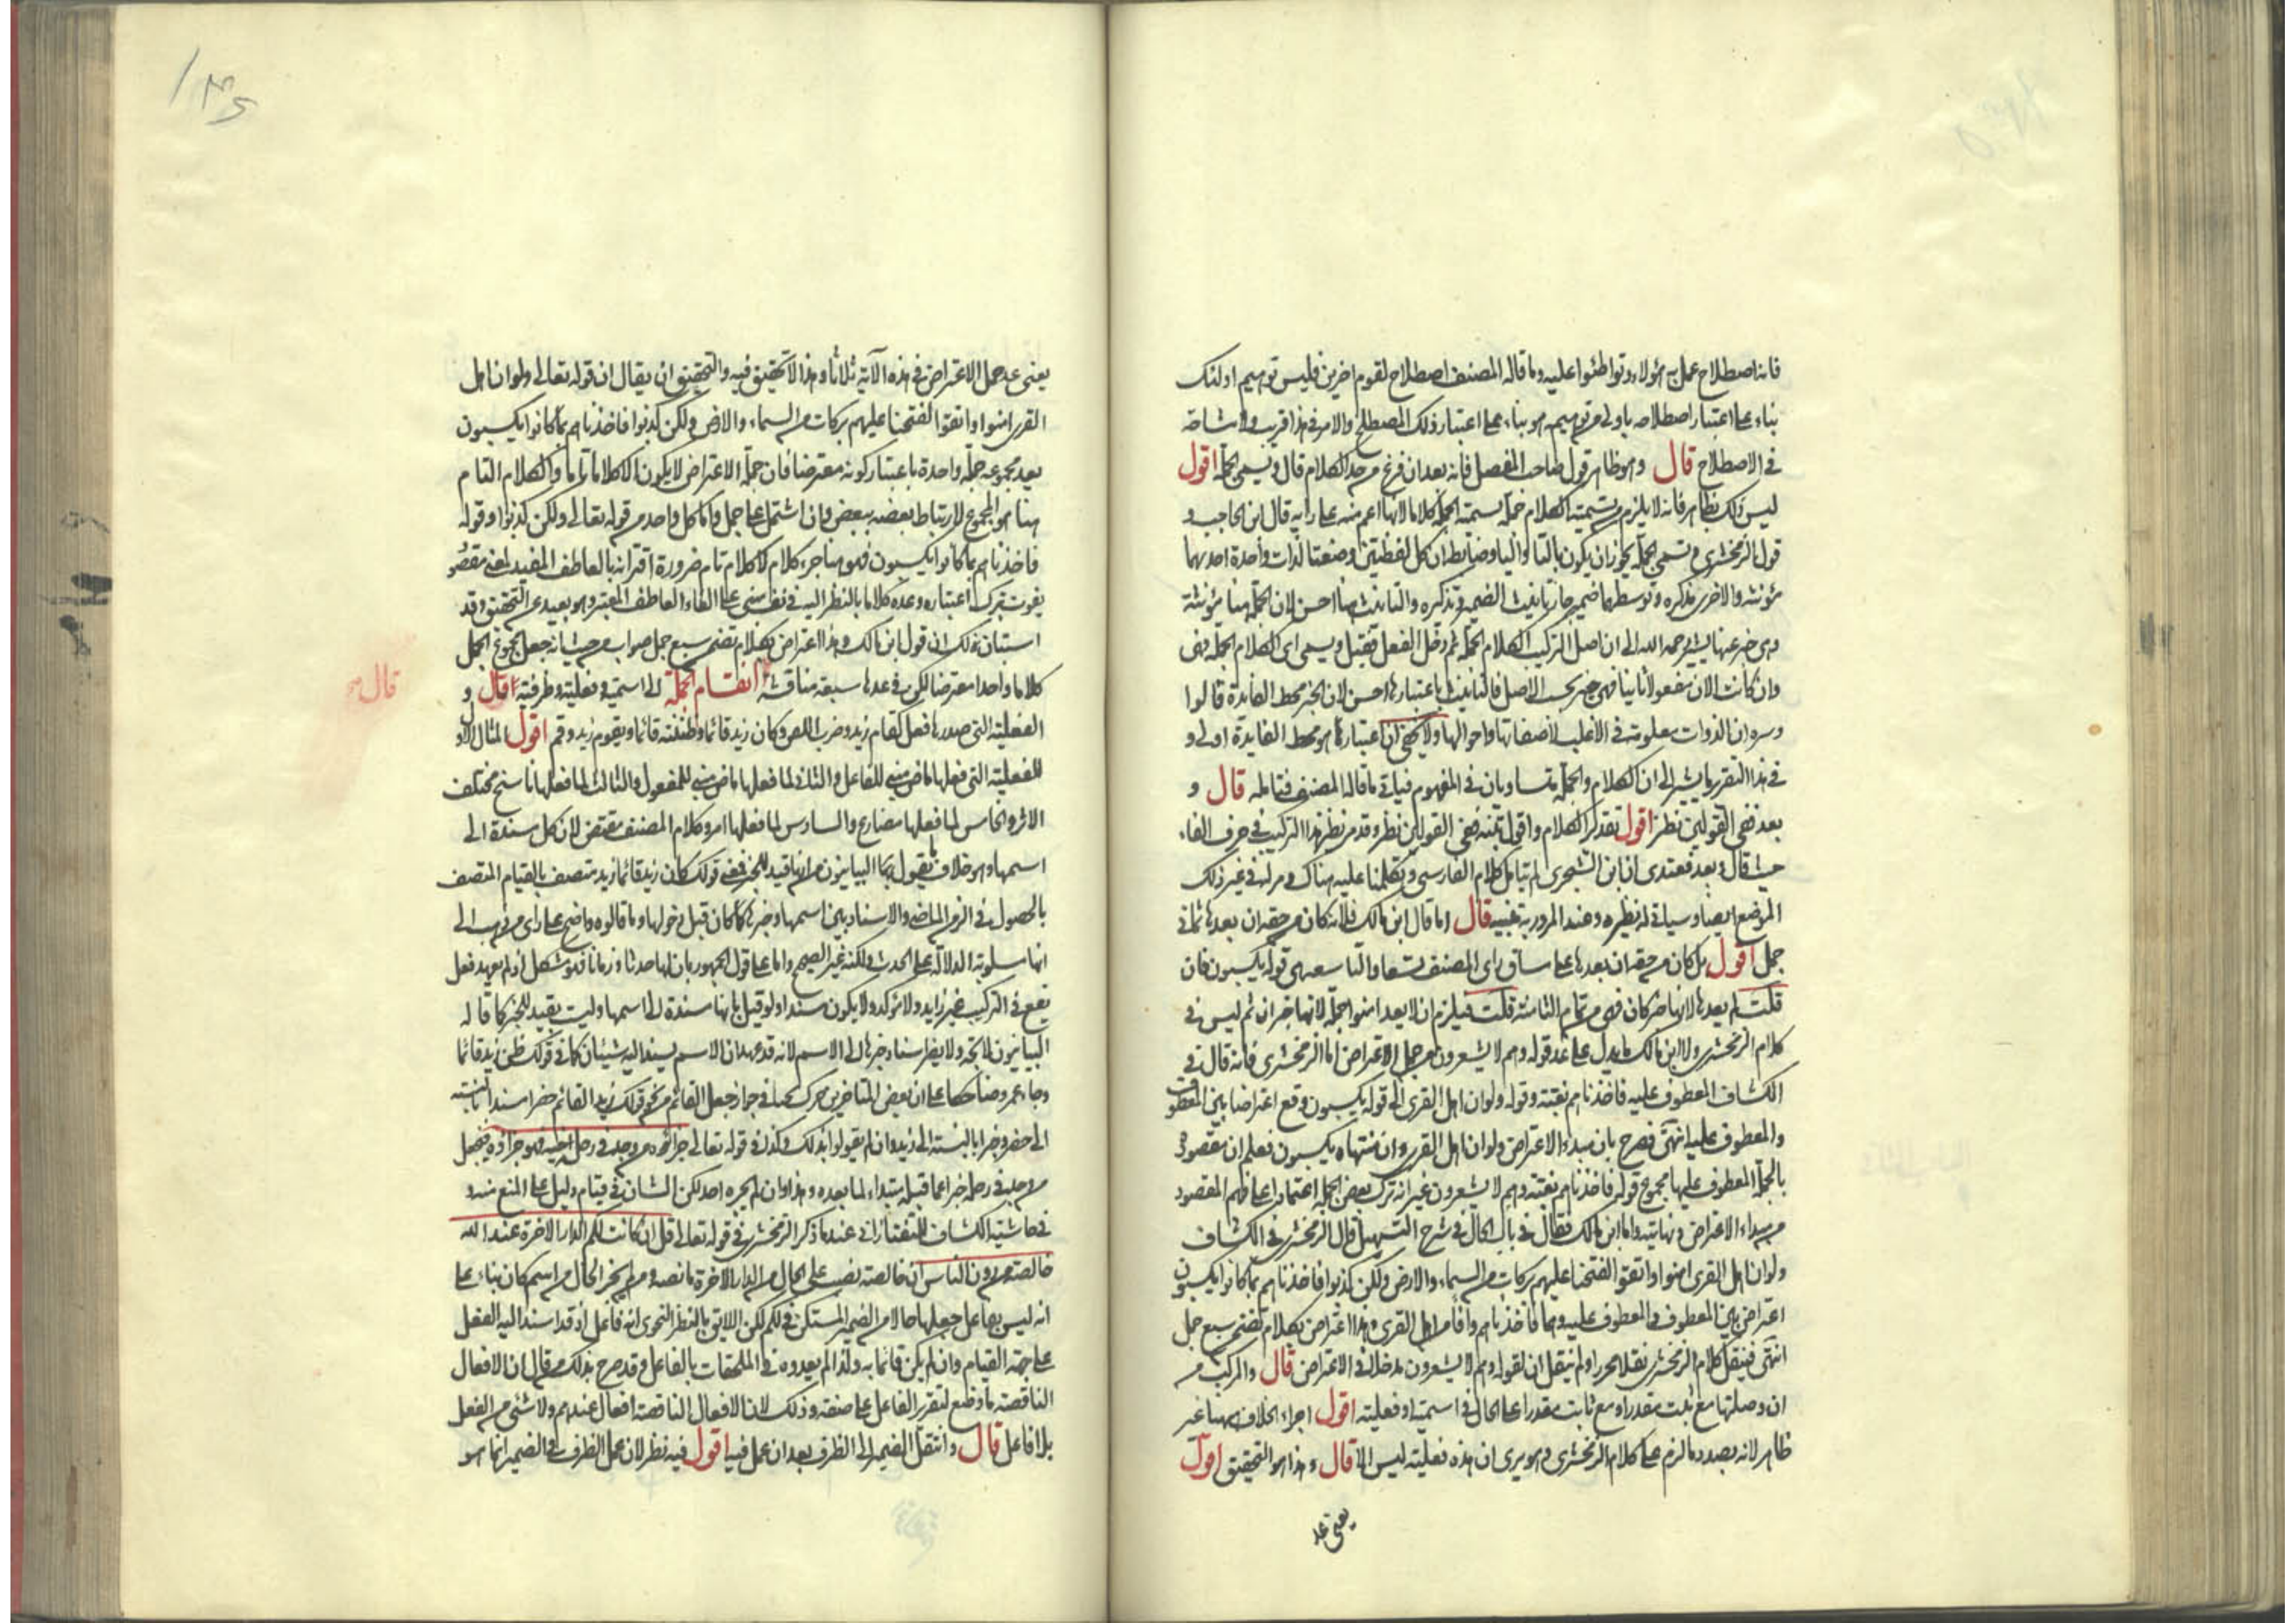 فانه اصطلاح عمل به هؤلاء وتواطئوا عليه وما قاله المصنف اصطلاح لقوم اخرين فليس توهيم اولئك
بناء على اعتبار اصطلاحه باولى من توهيمه هو بناء على اعتبار ذلك المصطلح والامر فى هذا قريب ولا مشاحة
فى الاصطلاح قال وهو ظاهر قول صاحب المفصل فانه بعد ان فرغ من حد الكلام قال ويسمى الجملة اقول
ليس ذلك بظاهر فانه لا يلزم من تسمية الكلام جملة تسمية الجملة كلاما لانها اعم منه على رايه قال ابن الحاجب و
قول الزمخشرى وتسمى الجملة يجوز ان يكون بالتا والياء وضابطه ان كل لفظتين وضعتا لذات واحدة احديهما
مؤنثة والاخرى مذكرة وتوسطهما ضمير جاز تانيث الضمير وتذكيره والتانيث هنا احسن لان الجملة هنا مؤنثة
وهى خبر عنها يشير رحمه الله الى ان اصل التركيب الكلام الجملة ثم دخل الفعل فقيل ويسمى اى الكلام الجملة فهى
وان كانت الان مفعولا ثانيا فهى خبر بحسب الاصل فالتانيث باعتبارها احسن لان الخبر محط الفايدة قالوا
وسره ان الذوات معلومة فى الاغلب لا صفاتها واحوالها ولا يخفى ان اعتبار ما هو محط الفايدة اولى و
فى هذا التقرير ما يشير الى ان الكلام والجملة متساويان فى المفهوم فيتاتى ما قاله المصنف فتامله قال و
بعد ففى القولين نظر اقول تقدير الكلام واقول تمنه ففى القولين نظر وقد مر نظير هذا التركيب فى حرف الفاء
حيث قال وبعد فعندى ان ابن الشجرى لم يتامل كلام الفارسى وتكلمنا عليه هناك ومر له فى غير ذلك
الموضع ايضا وسياتى له نظيره وعند المرور به تنبيه قال اما قال ابن مالك فلانه كان من حقه ان يعدها ثمانى
جمل اقول بل كان من حقه ان يعدها على مساق راى المصنف تسعا والتاسعة هى قوله يكسبون فان
قلت لم يعدها لانها خبر كان فهى من تمام الثامنة قلت فيلزم ان لا يعد امنوا الجملة لانها خبر ان ثم ليس فى
كلام الزمخشرى ولا ابن مالك ما يدل على عد قوله وهم لا يشعرون من جمل الاعتراض اما الزمخشرى فانه قال فى
الكشاف المعطوف عليه فاخذناهم بغتة وقوله ولو ان اهل القرى الى قوله يكسبون وقع اعتراضا بين المعطوف
والمعطوف عليه انتهى فصرح بان مبداء الاعتراض ولو ان اهل القرى وان منتهاه يكسبون فعلم ان مقصوده
بالجملة المعطوف عليها مجموع قوله فاخذناهم بغتة وهم لا يشعرون غير انه ترك بعض الجملة اعتمادا على فهم المقصود
من مبداء الاعتراض ونهايته واما ابن مالك فقال فى باب الحال فى شرح التسهيل قال الزمخشرى فى الكشاف
ولو ان اهل القرى امنوا واتقوا لفتحنا عليهم بركات من السماء والارض ولكن كذبوا فاخذناهم بما كانوا يكسبون
اعتراض بين المعطوف والمعطوف عليه وهما فاخذناهم وافامن اهل القرى وهذا اعتراض بكلام تضمن سبع جمل
انتهى فينقل كلام الزمخشرى نقلا محررا ولم ينقل ان لقوله وهم لا يشعرون مدخلا فى الاعتراض قال والمركب من
ان وصلتها مع ثبت مقدرا ومع ثابت مقدرا على الحال فى اسمية او فعلية اقول اجراء الخلاف ههنا غير
ظاهر لانه بصدد ما لزم على كلام الزمخشرى وهو يرى ان هذه فعلية ليس الا قال وهذا هو التحقيق اقول
يعنى عد
يعنى عد جمل الاعتراض فى هذه الآية ثلاثا وهذا لا تحقيق فيه والتحقيق ان يقال ان قوله تعالى ولو ان اهل
القرى امنوا واتقوا لفتحنا عليهم بركات من السماء والارض ولكن كذبوا فاخذناهم بما كانوا يكسبون
يعد مجموعه جملة واحدة باعتبار كونه معترضا فان جملة الاعتراض لا يكون الا كلاما تاما والكلام التام
هنا هو المجموع لارتباط بعضه ببعض وان اشتمل على جمل واما كل واحد من قوله تعالى ولكن كذبوا وقوله
فاخذناهم بما كانوا يكسبون فهو هنا جزء كلام لا كلام تام ضرورة اقترانه بالعاطف المفيد لمعنى مقصود
يفوت بترك اعتباره وعده كلاما بالنظر اليه فى نفسه مبنى على الغاء العاطف المعتبر وهو بعيد عن التحقيق وقد
استبان من ذلك ان قول ابن مالك وهذا اعتراض بكلام تضمن سبع جمل صواب من حيث انه جعل المجموع الجمل
كلاما واحدا معترضا لكن فى عدها سبعة مناقشة انقسام الجملة الى اسمية وفعلية وظرفية قال و
قال صح
الفعلية التى صدرها فعل كقام زيد وضرب اللص وكان زيد قائما وظننته قائما ويقوم زيد وقم اقول المثال الاول
للفعلية التى فعلها ماض مبنى للفاعل والثانى لما فعلها ماض مبنى للمفعول والثالث لما فعلها ناسخ مختلف
الاثر والخامس لما فعلها مضارع والسادس لما فعلها امر وكلام المصنف مقتض لان كل مسندة الى
اسمها وهو خلاف ما يقول به البيانيون من انها قيد للخبر فمعنى قولك كان زيد قائما زيد متصف بالقيام المتصف
بالحصول فى الزمن الماضى والاسناد بين اسمها وخبرها كما كان قبل دخولها وما قالوه واضح على راى من ذهب الى
انها مسلوبة الدلالة على الحدث ولكنه غير الصحيح واما على قول الجمهور بان لها حدثا وزمانا فهو مشكل اذ لم يعهد فعل
يقع فى التركيب غير زايد ولا مؤكد ولا يكون مسندا ولو قيل بانها مسندة الى اسمها وليست بقيد للخبر كما قاله
البيانيون لاتجه ولا يضر اسناد خبرها الى الاسم لانه قد عهد ان الاسم يسند اليه شيئان كما فى قولك ظن زيد قائما
وجاء عمرو ضاحكا على ان بعض المتاخرين حرك هنا فى جواز جعل القائم من نحو قولك زيد القائم حضر مسندا بالنسبة
الى حضر وخبرا بالنسبة الى زيد وان لم يقولوا بذلك وكذلك فى قوله تعالى جزاؤه من وجد فى رحله فهو جزاؤه فيجعل
من وجد فى رحله خبرا عما قبله مبتداء لما بعده وهذا وان لم يجزه احد لكن الشان فى قيام دليل على المنع منه و
فى حاشية الكشاف للتفتازانى عندما ذكر الزمخشرى فى قوله تعالى قل ان كانت لكم الدار الاخرة عند الله
خالصة من دون الناس ان خالصة نصب على الحال من الدار الاخرة ما نصه ومن لم يجز الحال من اسم كان بناء على
انه ليس بفاعل جعلها حالا من الضمير المستكن فى لكم لكن اللايق بالنظر النحوى انه فاعل اذ قد اسند اليه الفعل
على جهة القيام وان لم يكن قائما به ولذا لم يعدوه فى الملحقات بالفاعل وقد صرح بذلك من قال ان الافعال
الناقصة ما وضع لتقرير الفاعل على صفة وذلك لان الافعال الناقصة افعال عندهم ولا شئ من الفعل
بلا فاعل قال وانتقل الضمير الى الظرف بعد ان عمل فيه اقول فيه نظر لان عمل الظرف فى الضمير انما هو